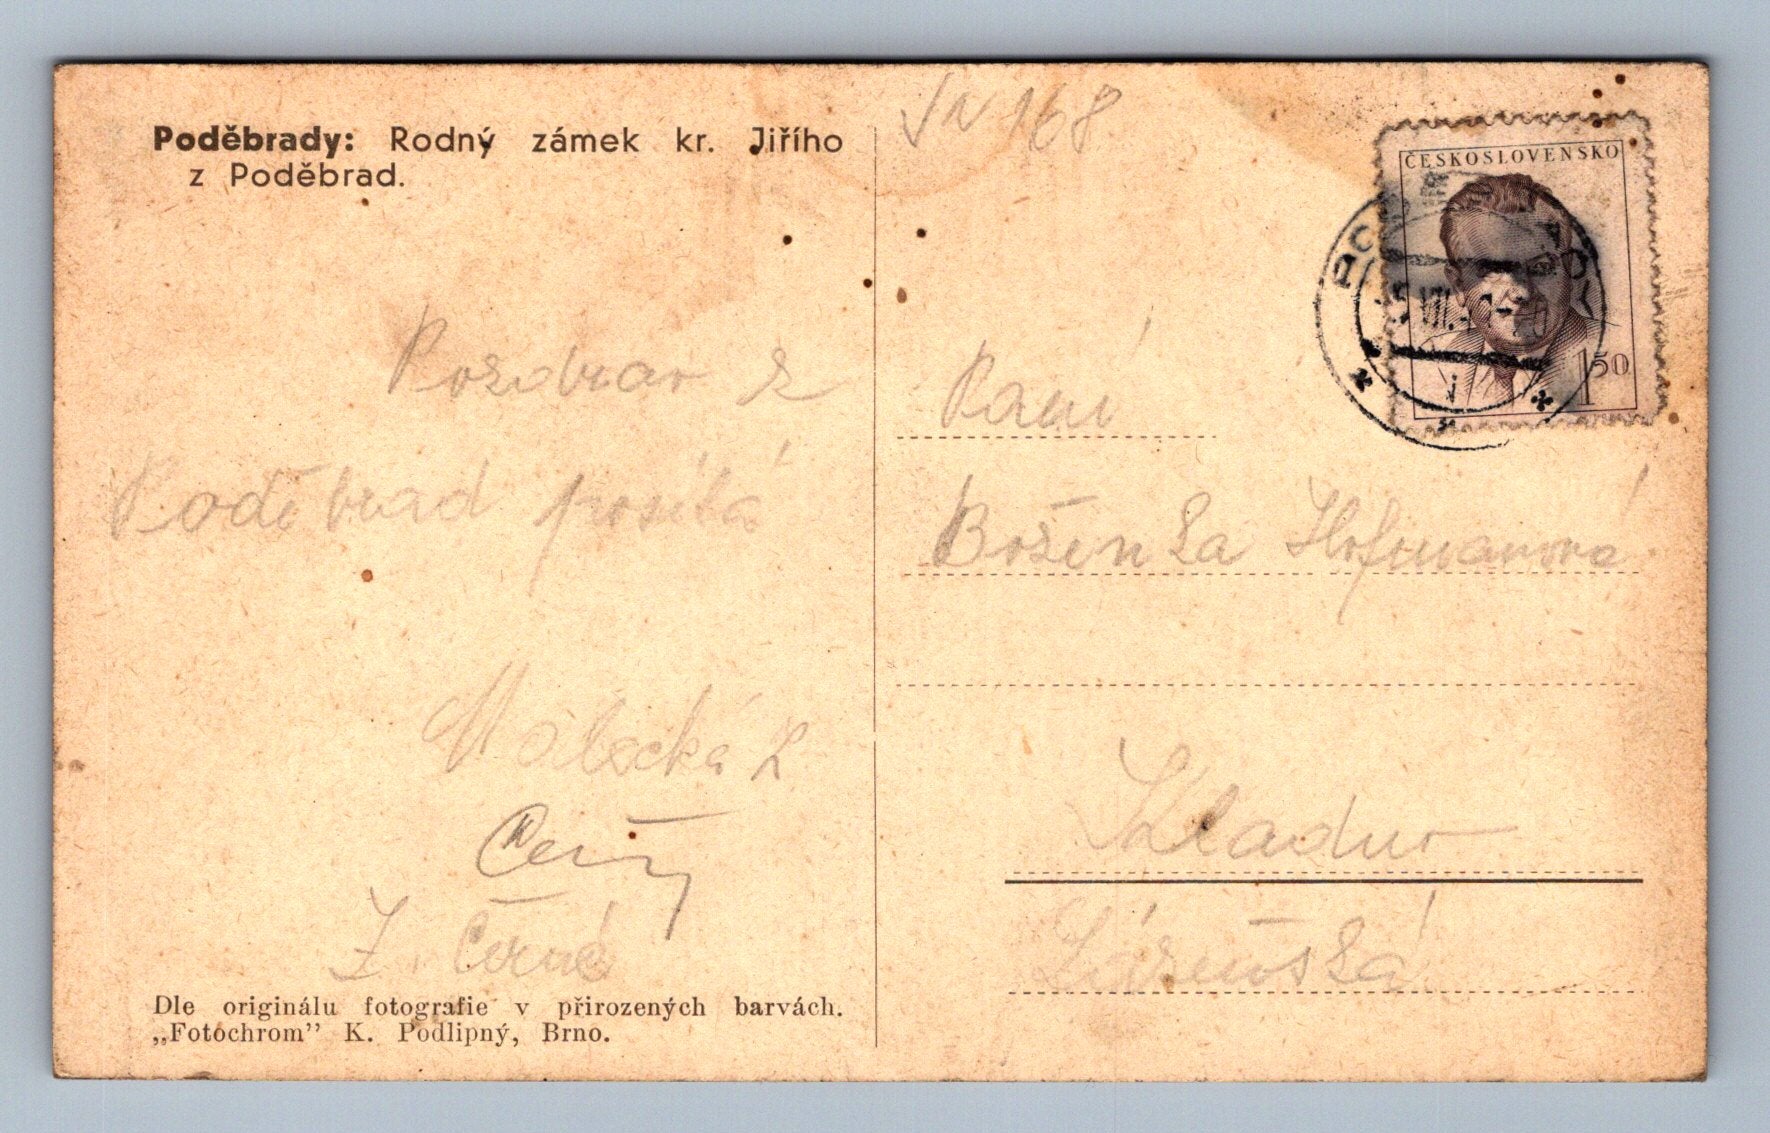 Poděbrady: Rodný zámek kr. Jiřího
z Poděbrad.
168
ČESKOSLOVENSKO
1 50
VII.
Pozdrav z
Poděbrad posílá
Malecká
Černý
Z. Černé
Paní
Boženka Hofmanová
Kladno
Lázeňská
Dle originálu fotografie v přirozených barvách.
„Fotochrom” K. Podlipný, Brno.